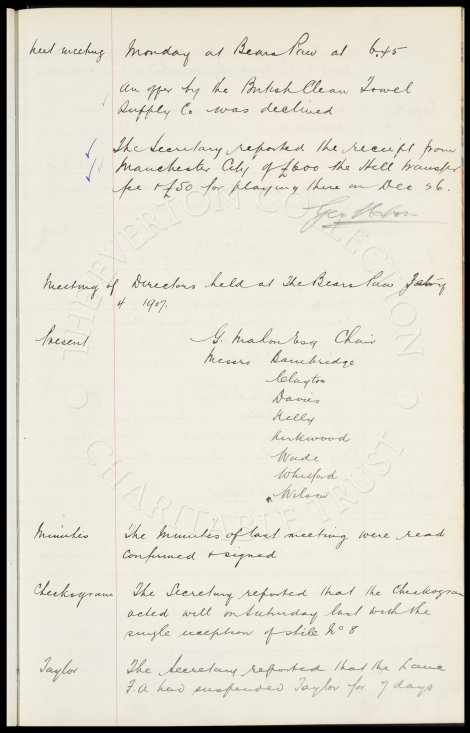 Next meeting Monday at Bears Paw at 6.45
An offer by the British Clean Towel
Supply Co was declined
The Secretary reported the receipt from
Manchester City of £600 the Hill transfer
fee + £50 for playing there on Dec 26.
Geo Mahon
Meeting of Directors held at The Bears Paw
4 1907.
Present G. Mahon Esq Chair
Messrs Bainbridge
Clayton
Davies
Kelly
Kirkwood
Wade
Whitford
Wilson
Minutes The Minutes of last meeting were read
confirmed & signed
The Secretary reported that the
acted well on Saturday last with the
single exception of stile No 8
Taylor The Secretary reported that the Lanc
F.A had suspended Taylor for 7 days
THE EVERTON COLLECTION
CHARITABLE TRUST